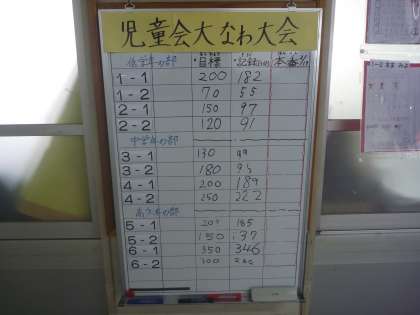 児童会大なわ大会
低学年の部 ・目標 ・記録 本番
1-1 200 182
1-2 70 55
2-1 150 97
2-2 120 91
中学年の部
3-1 130
3-2 180
4-1 200 189
4-2 250 222
高学年の部
5-1 185
5-2 150 137
6-1 350 346
6-2 300